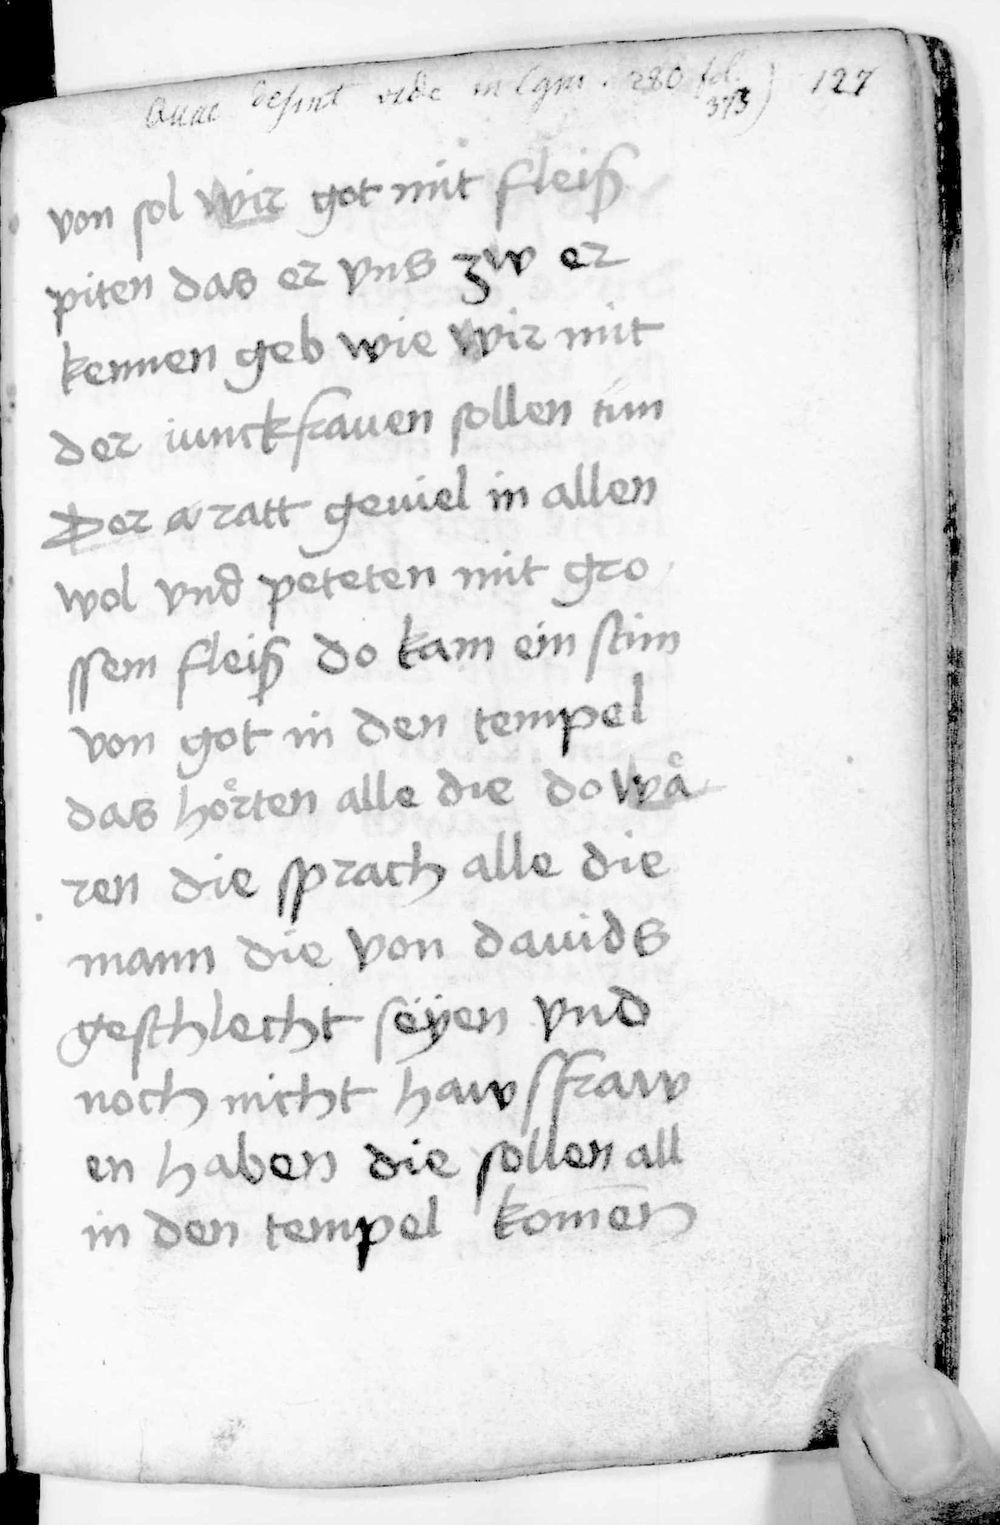 Quae desint vide in Cgm. 280 fol. 127
373)
von sol wir got mit fleiß
piten das er vns zw er
kennen geb wie wir mit
der iunckfrauen sollen tun
Der ratt geuiel in allen
wol vnd peteten mit gro
ssem fleiß do kam ein stim
von got in den tempel
das hörten alle die do wå
ren die sprach alle die
mann die von dauids
geschlecht seÿen vnd
noch nicht hawsfraw
en haben die sollen all
in den tempel komen